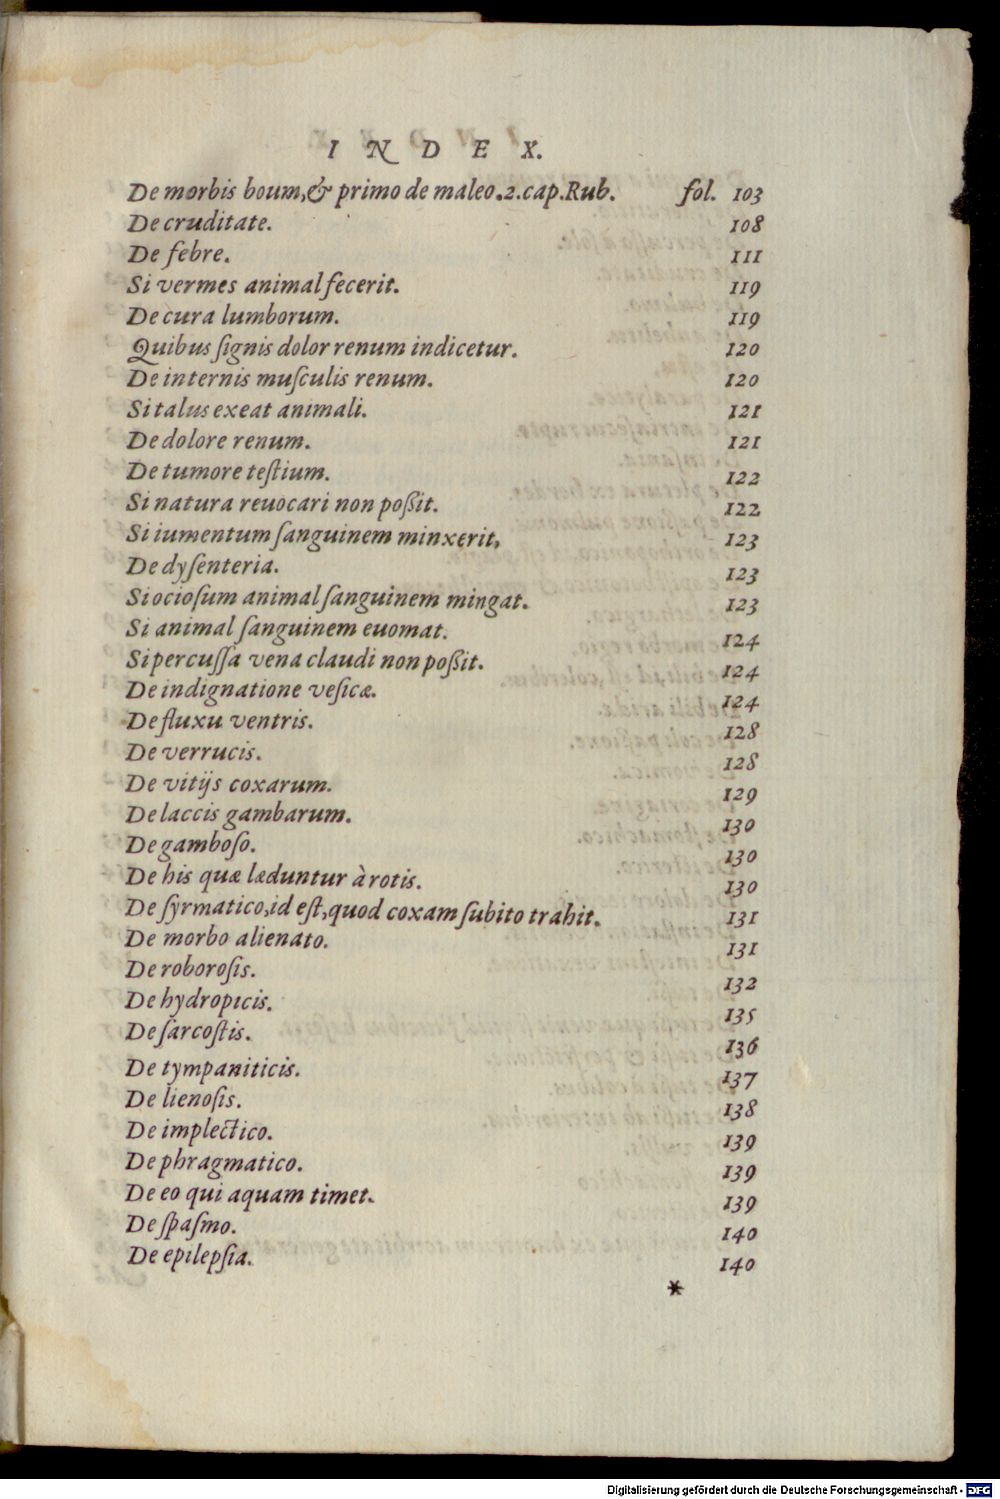 INDEX.
De morbis boum, & primo de maleo. 2. cap. Rub. fol. 103
De cruditate. 108
De febre. 111
Si vermes animal fecerit. 119
De cura lumborum. 119
Quibus ſignis dolor renum indicetur. 120
De internis muſculis renum. 120
Si talus exeat animali. 121
De dolore renum. 121
De tumore teſtium. 122
Si natura reuocari non poßit. 122
Si iumentum ſanguinem minxerit, 123
De dyſenteria. 123
Si ocioſum animal ſanguinem mingat. 123
Si animal ſanguinem euomat. 124
Si percuſſa vena claudi non poßit. 124
De indignatione veſicæ. 124
De fluxu ventris. 128
De verrucis. 128
De vitijs coxarum. 129
De laccis gambarum. 130
De gamboſo. 130
De his quæ læduntur à rotis. 130
De ſyrmatico, id eſt, quod coxam ſubito trahit. 131
De morbo alienato. 131
De roboroſis. 132
De hydropicis. 135
De ſarcoſtis. 136
De tympaniticis. 137
De lienoſis. 138
De implectico. 139
De phragmatico. 139
De eo qui aquam timet. 139
De ſpaſmo. 140
De epilepſia. 140
*
Digitalisierung gefördert durch die Deutsche Forschungsgemeinschaft - DFG